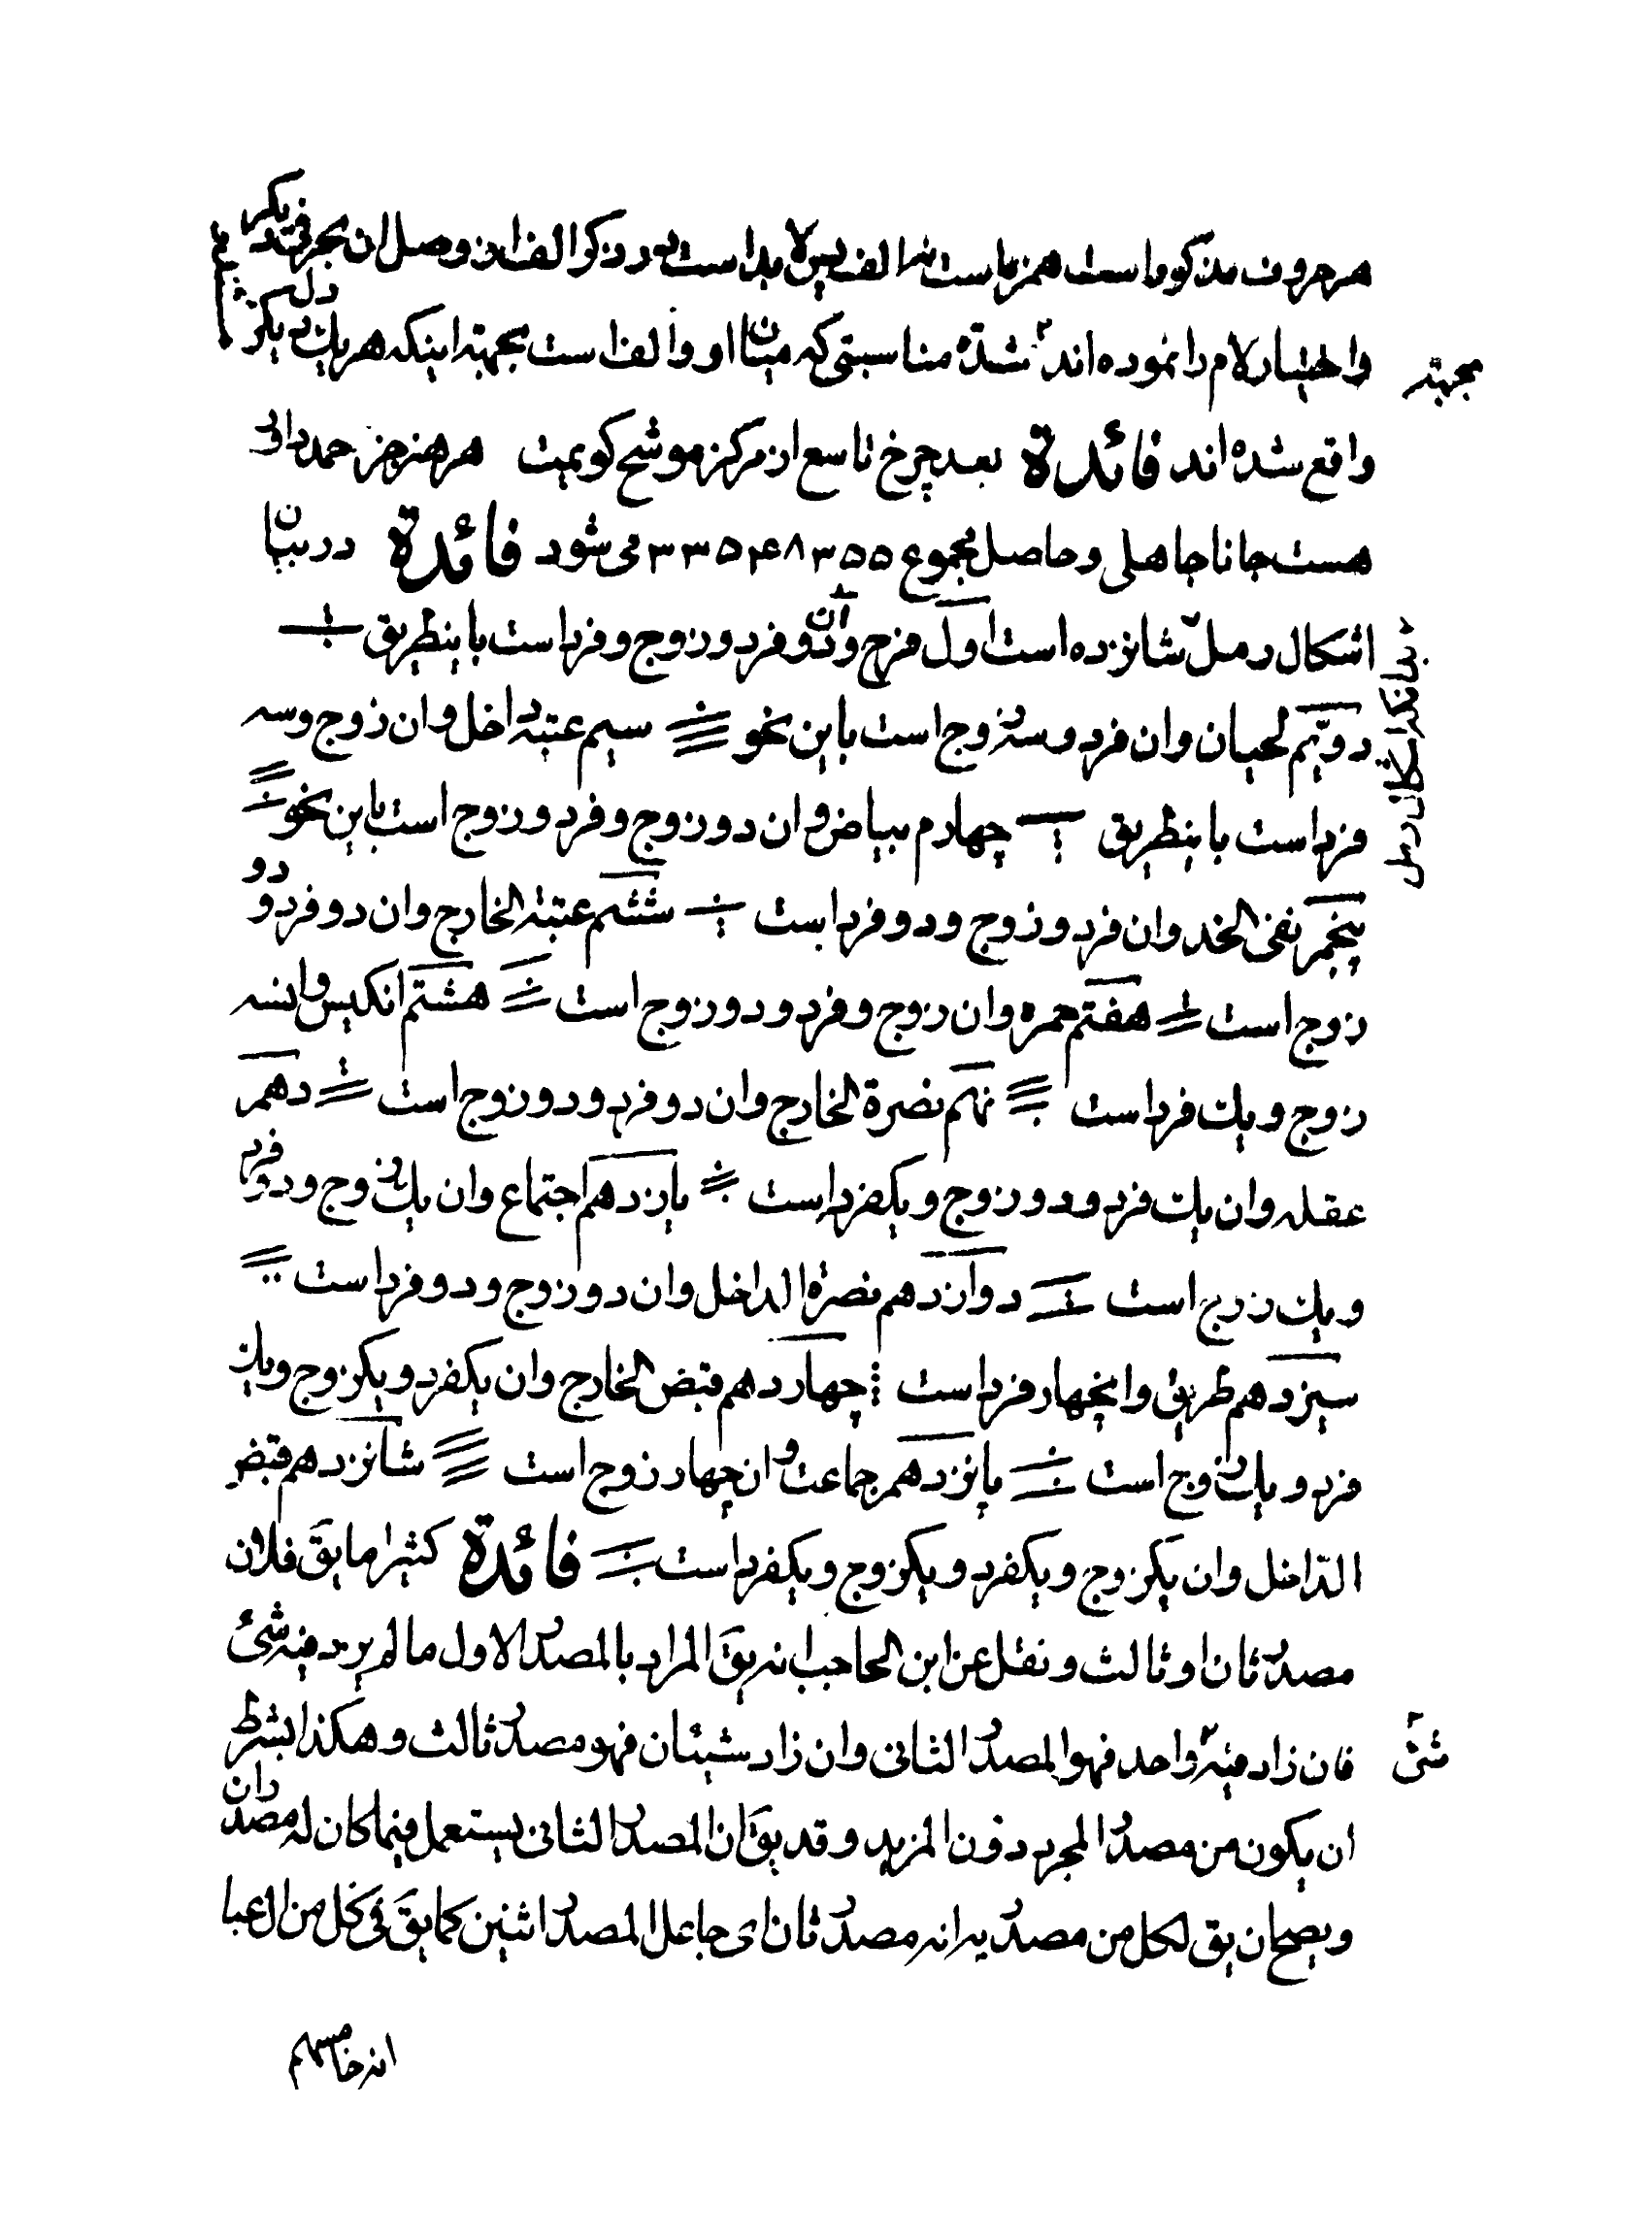 هر حروف مذکوره است همزه است نه الف پس لابد است در ذکر الف از وصل ان بحرفی دیگر
واختیار لام را نموده‌اند شدّة مناسبتی که میان او والف است بجهتة اینکه هریك در دل یکدیگر
بجهتة
واقع شده‌اند فائدة بعد چرخ تاسع از مرکز موشح کویمت هر هنر جز حمد دانی
هست جانا جاهلی و حاصل مجموع ۳۳۵۴۸۳۵۵ می شود فائدة در بیان
اشکال رمل شانزده است اول فرح وان دو فرد و زوج و فرد است باینطریق
در بیان ذکر اشکال رمل
دویّم لحیان وان فرد و سه زوج است باین نحو سیم عتبة داخل وان زوج وسه
فرد است باینطریق چهارم بیاض وان دو زوج و فرد و زوج است باین نحو
پنجم نقی الخد وان فرد و زوج و دو فرد است ششم عتبة الخارج وان دو فرد و دو
زوج است هفتم حمره وان زوج و فرد و دو زوج است هشتم انکیس وان سه
زوج و یك فرد است نهم نصرة الخارج وان دو فرد و دو زوج است دهم
عقله وان یك فرد و دو زوج و یکفرد است یازدهم اجتماع وان یك زوج و دو فرد
و یك زوج است دوازدهم نصرة الداخل وان دو زوج و دو فرد است
سیزدهم طریق وانچهار فرد است چهاردهم قبض الخارج وان یکفرد و یکزوج ویك
فرد و یك زوج است پانزدهم جماعت وان چهار زوج است شانزدهم قبض
الداخل وان یکزوج و یکفرد و یکزوج و یکفرد است فائدة کثیرا ما یق فلان
مصدر ثان او ثالث و نقل عن ابن الحاجب انه یق المراد بالمصدر الاول ما لم یزد فیه شئ
فان زاد فیه واحد فهو المصدر الثانی وان زاد شیئان فهو مصدر ثالث وهکذا بشرط
شئ
ان یکون من مصدر المجرد دون المزید وقد یق ان المصدر الثانی یستعمل فیما کان له مصدران
ویصح ان یق لکل من مصدریه انه مصدر ثان ای جاعل المصدر اثنین کما یق فی کل من ال عبا
انه خامسهم